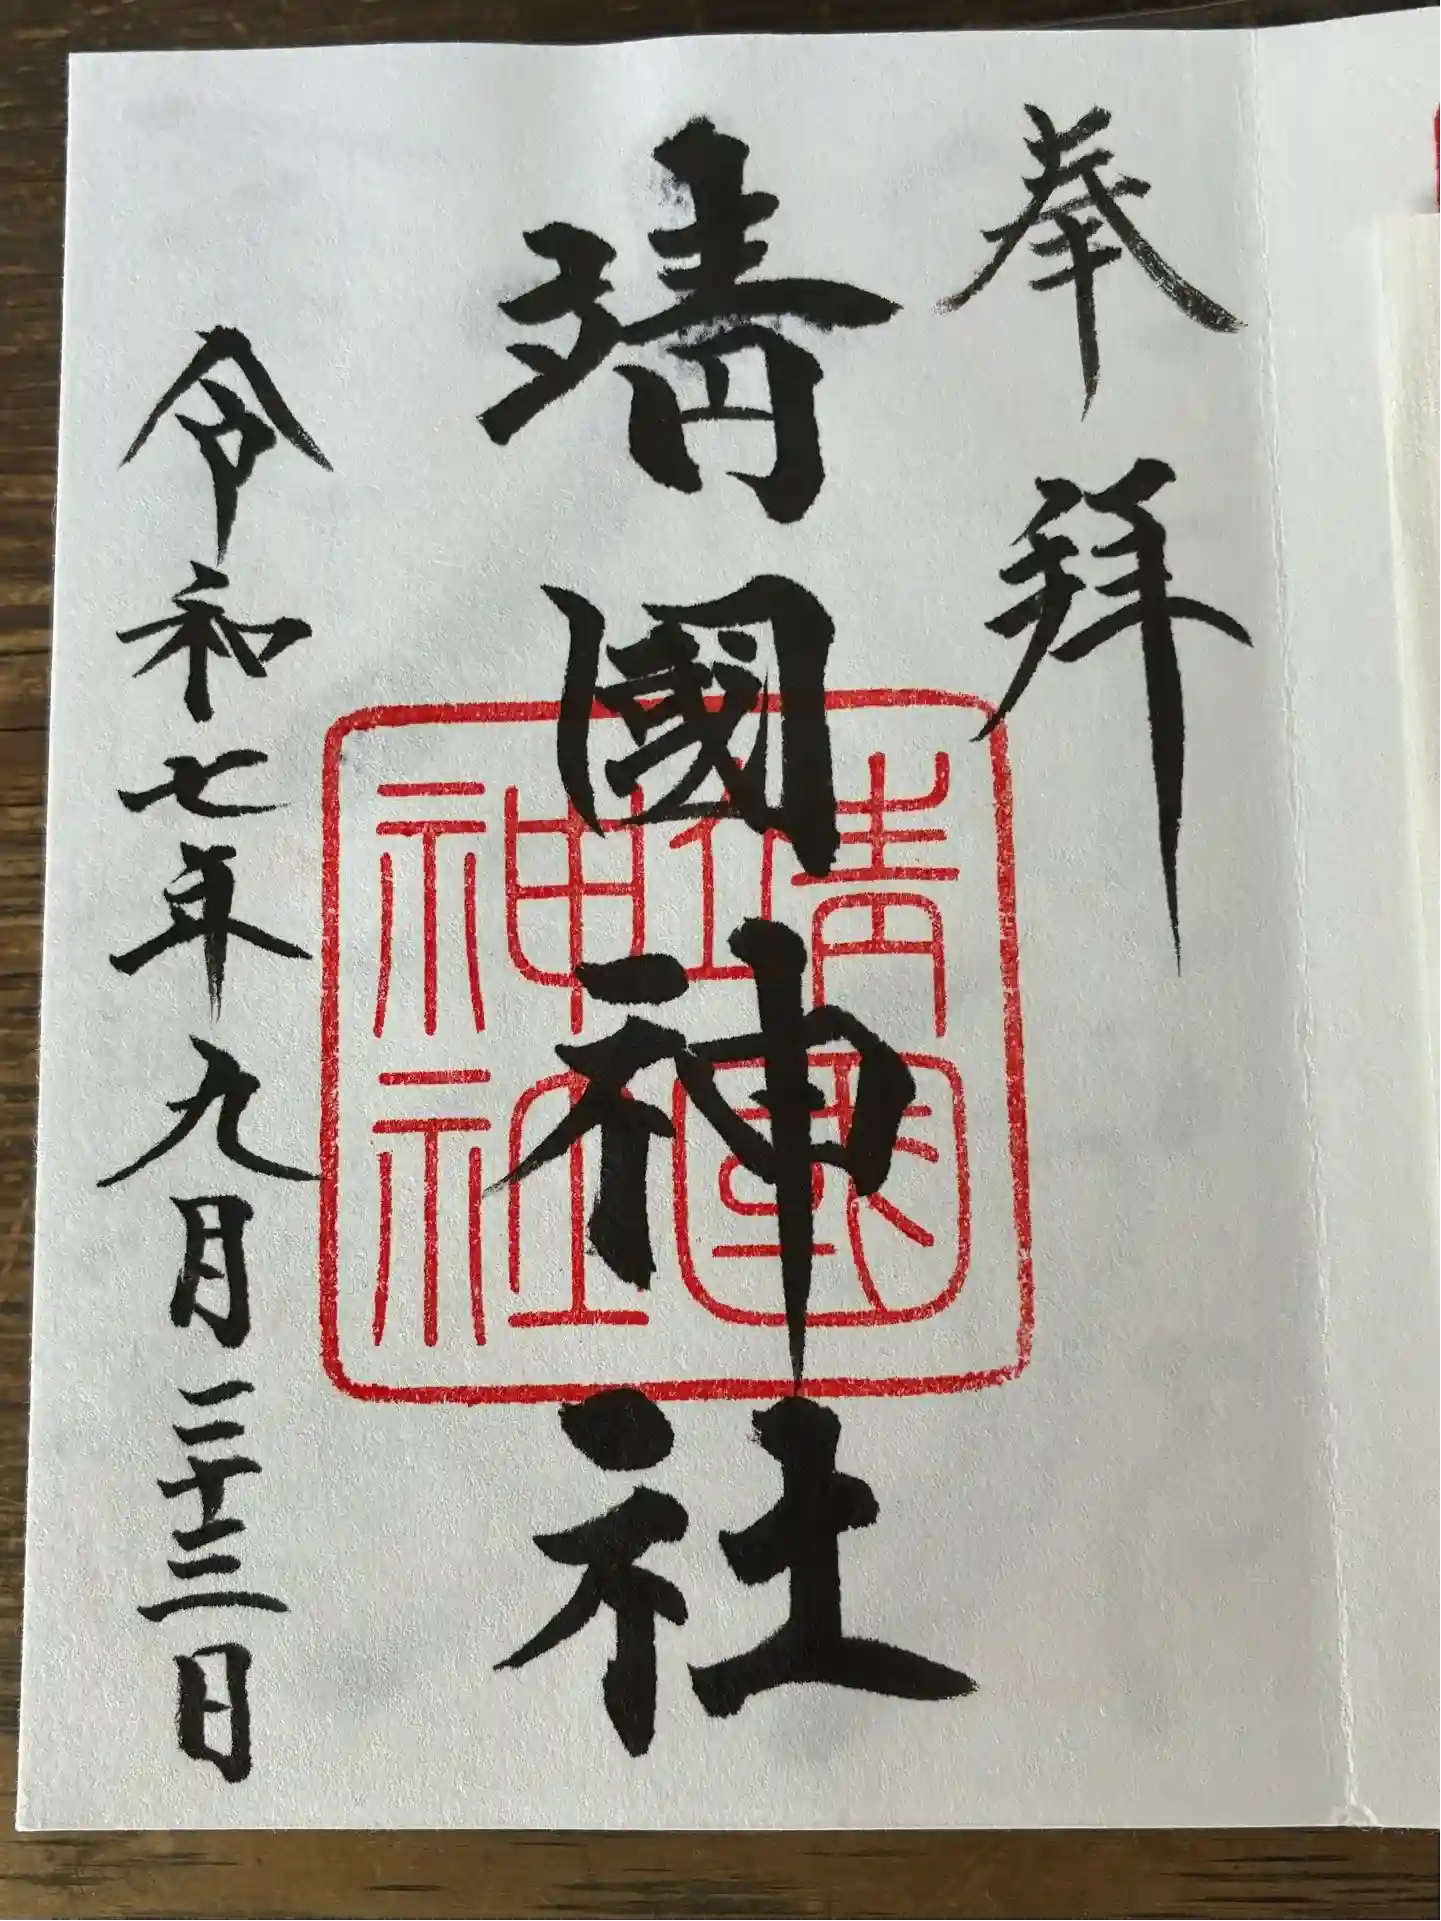 奉拝
靖國神社
靖國神社
令和七年九月二十三日